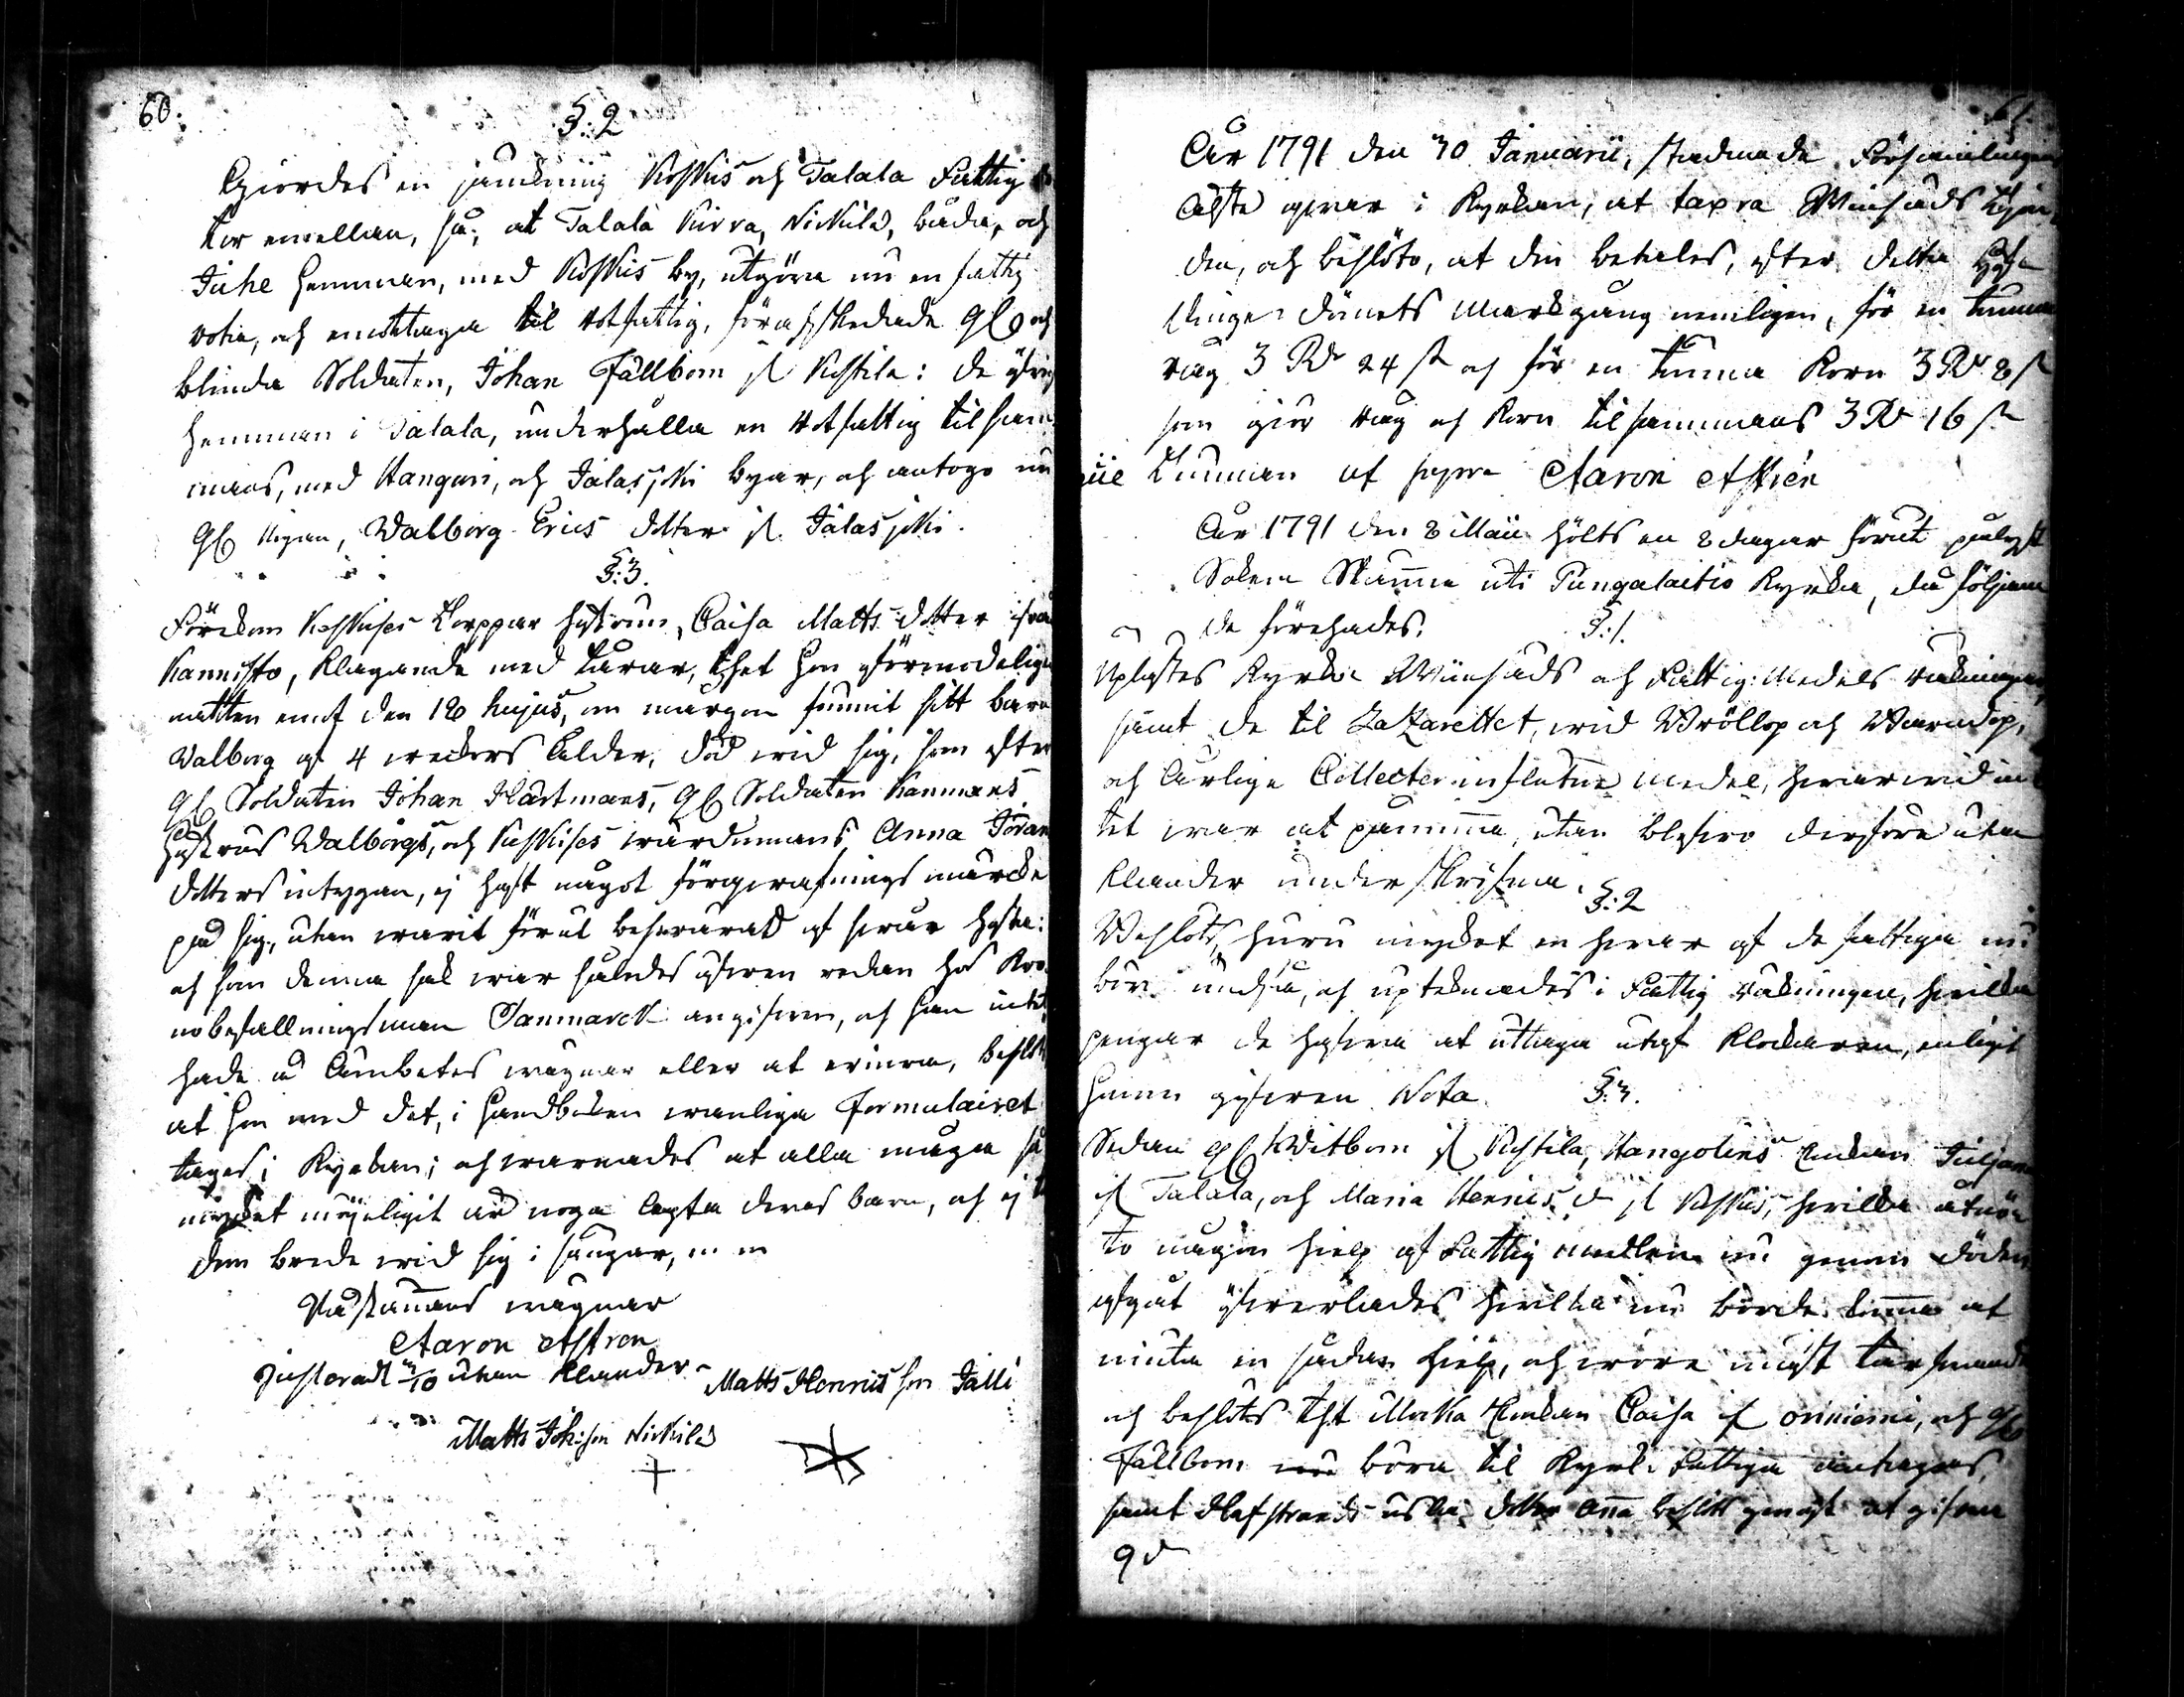 60.
§: 2
Giordes en jämkning Koskis och Talala Fattig
tor emellan, så, at Talala Kirra, Nickilä, båda, och
Juhe hemman, med Koskis by, utgöra nu en fattig
rotia, och emottaga til rotfattig, förafskedade gl och
blinda Soldaten, Johan Fällbom if Kustila: de öfrige
hemman i Talala, underhålla en Rotfattig tilsam
mans, med Hangari, och Jalasjoki byar, och antogo nu
gl pigan, Walborg Erics dotter if Jalasjoki.
§: 3.
Förekom Koskises hustrun, Caisa Matts dotter ifrån
Kannisto, klagande med tårar, thet hon oförmodeligen
natten emot den 18 hujus, om morgon funnit sitt barn
Walborg af 4 weckors ålder, död wid sig, som efter
gl Soldaten Johan Hartmans, gl Soldaten Kanmans
hustrus Walborgs, och Koskises wärdinnans Anna Jöran
dotters intygan, ej haft något förgerafnings märcke
på sig, utan warit förut beswärad af swår hosta:
och som denna sak war således öfwen redan hos Kro
nobefallningsman Tanmarck angifwen, och han intet
hade å Ämbetes wägnar eller at erinra, beslöts
at hon med det, i Handboken wanliga Formulairet
tages i Kyrkan; och warnades at alla måga så
mycket möjeligit är noga agta deras barn, och ej
dem brede wid sig i sängar, m m
På Stämans wägnar
Aaron Astren
Justerat 3/10 utan klander
Matts Henricsson Jälli
Matts Johsson Nickilä
61.
År 1791 den 30 Januarii, stadnade Församlingen
qwar i Kyrkan, at taxera Winsäds
den, och beslöto, at den betales, efter detta
dömets Markgång nemligen, för en tunna
råg 3 Rd 24 s och för en tunna Korn 3 Rd 8 s
som giör råg och Korn tilsammans 3 Rd 16 s
tunnan af Aaron Astrén
År 1791 den 8 Maii hölts en 8 dagar förut pålyst
Sokne Stämma uti Pungalaitio Kyrka, då följan
de förehades. §: 1.
Uplästes Kyrko Winsäds och Fattig-Medels räkningar,
samt de til Lazarettet, wid Bröllop och Barndop,
och Årlige Collecter influtne medel, hwarwid in
tet war at påminna, utan blefwo derföre utan
klander underskrifna. §: 2
Beslöts, huru mycket en hwar af de fattiga nu
bör undfå, och uptecknades i Fattig räkningen, hwilka
pengar de hafwa at uttaga utaf Klockaren, enligt
honom gifwen Nota. §: 3.
Sedan gl Witbom if Kustila, Hangolins Enkan
if Talala, och Maria Henrics d if Koskis, hwilka åtniu
to någon hielp af Fattig medlen nu genom döden
afgåt öfwerlades hwilka nu borde komma at
niuta en sådan hielp, och wore mäst tarfwande
och beslöts tht Enkan Caisa if och gl
Fällbom nu böra til Kyrko Fattiga antagas,
samt Hafstrands dotter Anna beslöts genast at gifwa
9 d